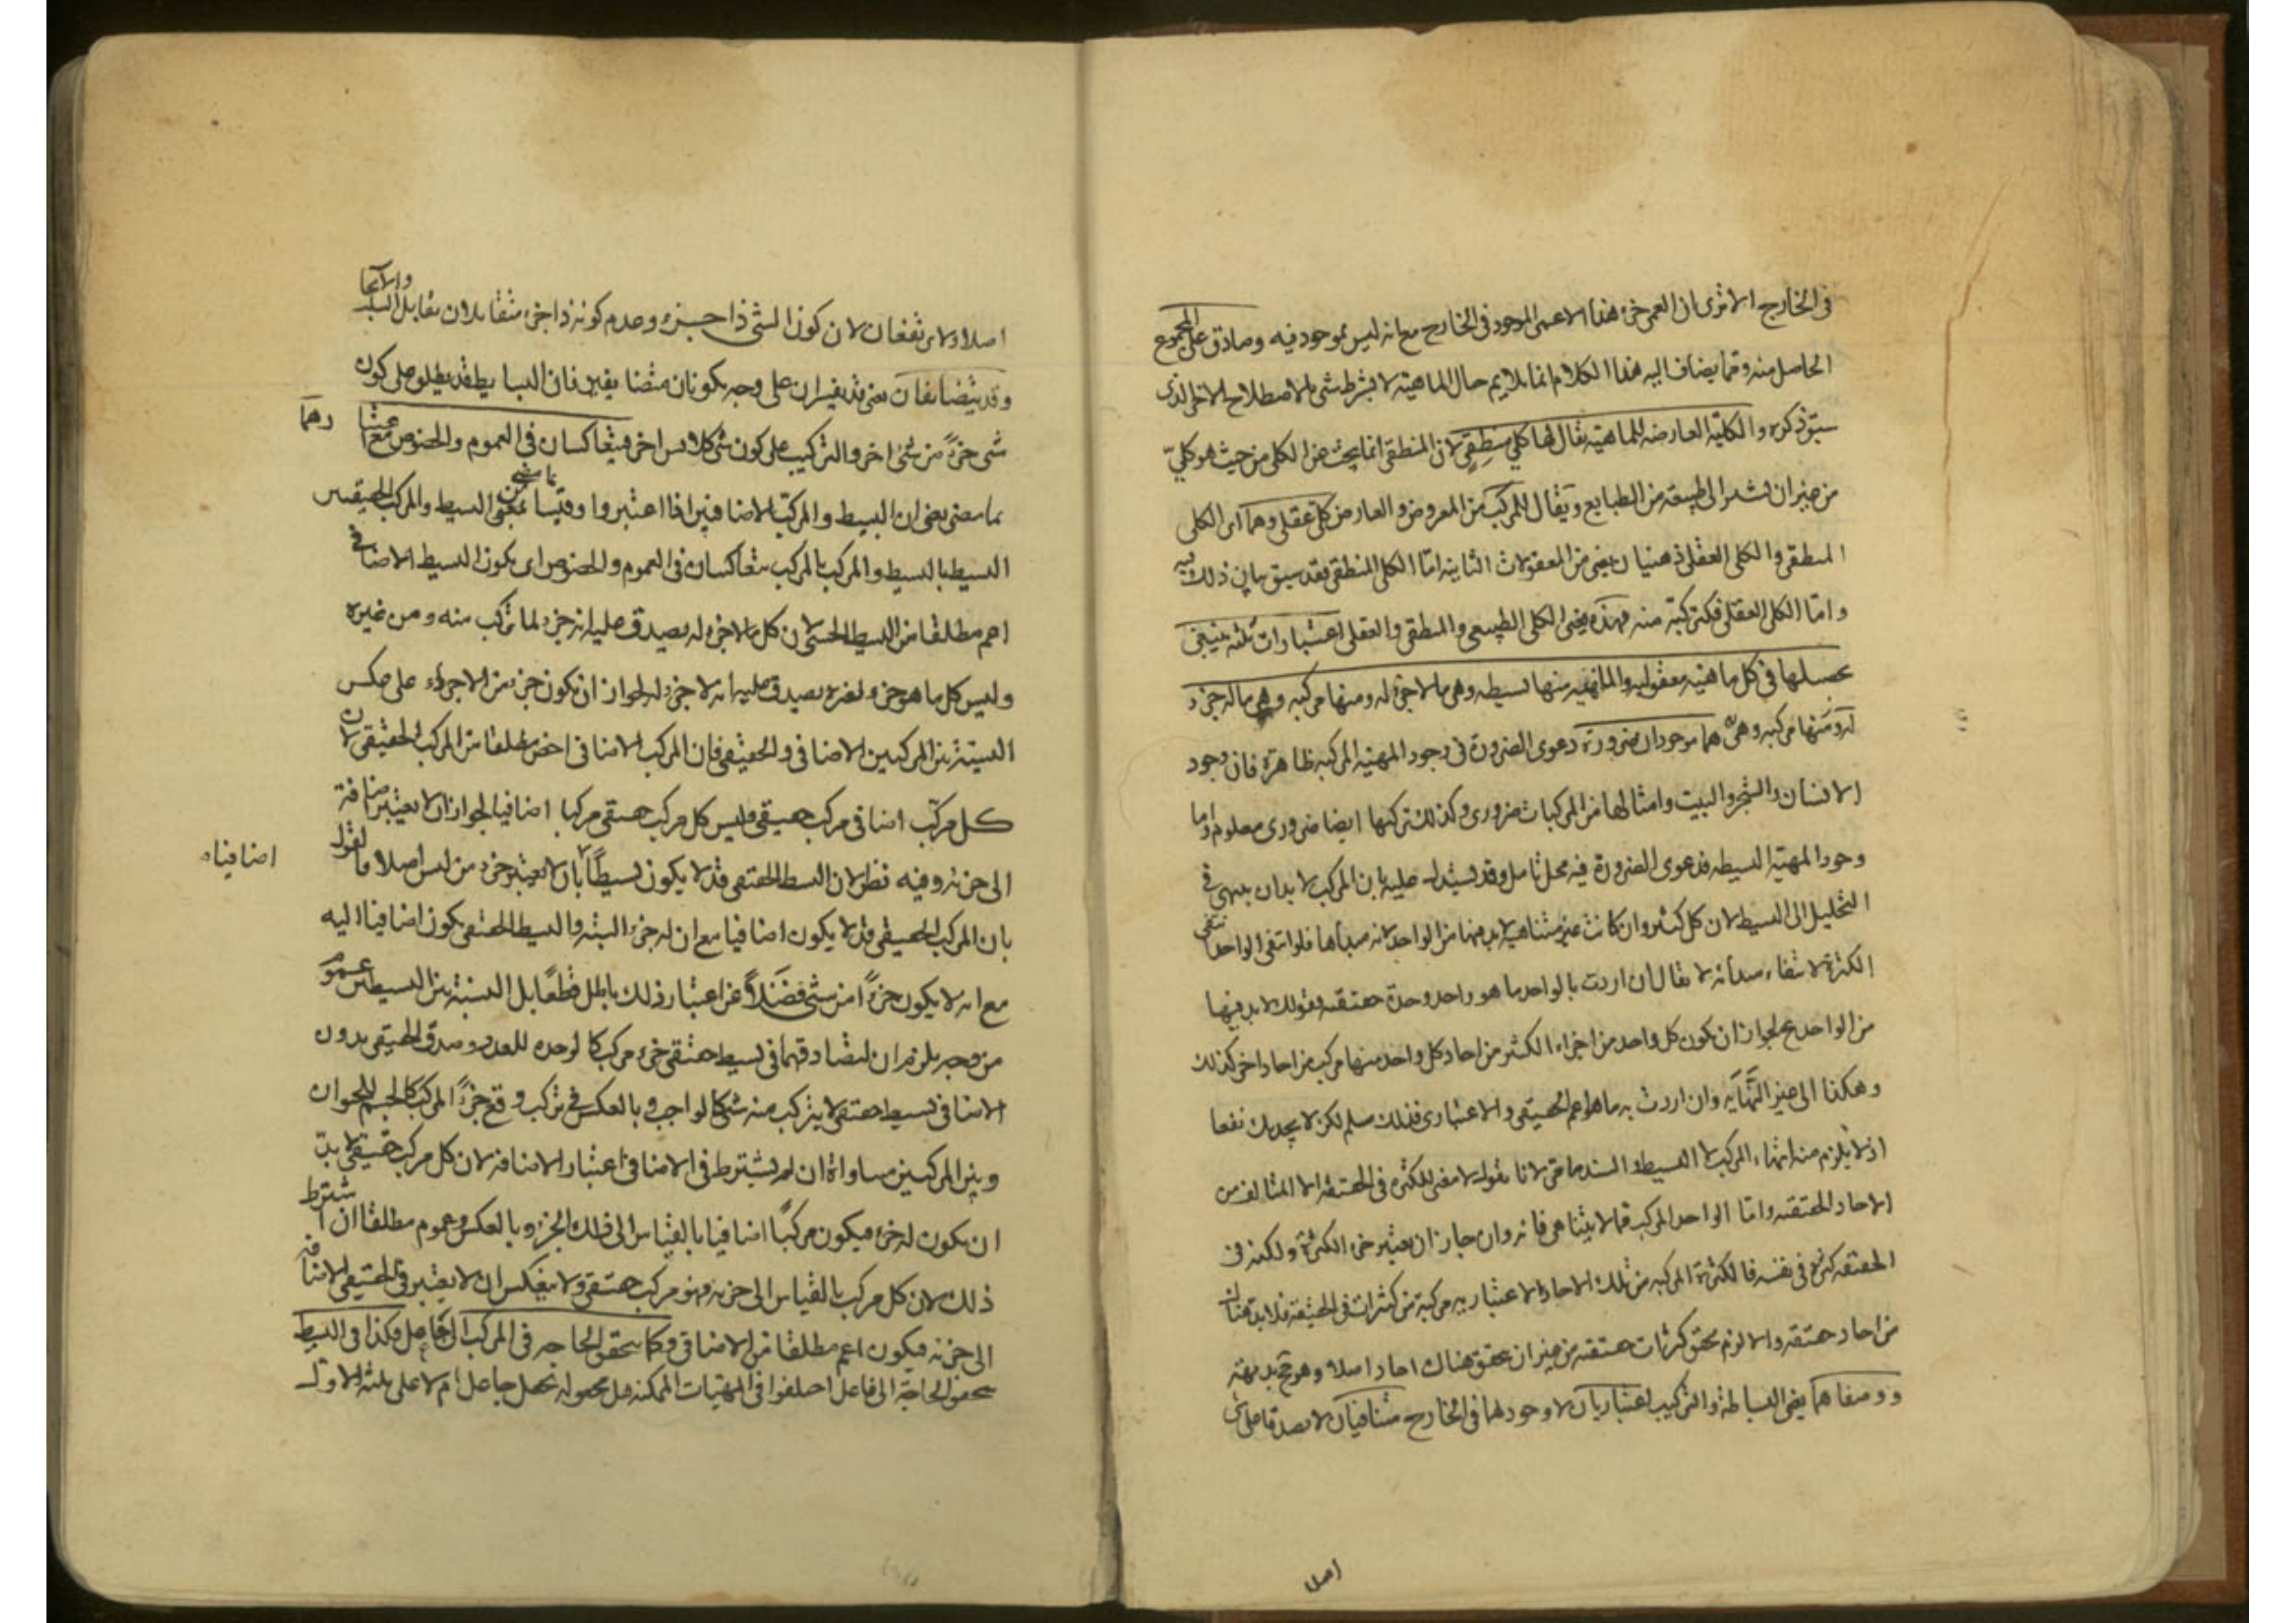 فى الخارج الا ترى ان العمى جزء هذا الاعمى الموجود فى الخارج مع انه ليس بموجود فيه وصادق على المجموع
الحاصل منه ومما يضاف اليه هذا الكلام انما يلايم حال الماهية لا بشرط شى بالاصطلاح الاخر الذى
سبق ذكره والكلية العارضه للماهية يقال لها كلي منطقي لان المنطقى انما يبحث عن الكلى من حيث هو كليّ
من غير ان يشير الى طبيعة من الطبايع ويقال للمركب من المعروض والعارض كلى عقلى وهما اى الكلى
المنطقى والكلى العقلى ذهنيان يعنى من المعقولات الثانيه امّا الكلى المنطقى فقد سبق بيان ذلك فيه
وامّا الكلى العقلى فلتركبه منه فهذه يعنى الكلى الطبيعى والمنطقى والعقلى اعتبارات ثلثه ينبغى
تحصيلها فى كل ماهية معقوله والماهية منها بسيطه وهى ما لا جزء له ومنها مركبه وهى ما له جزء
له ومنها مركبه وهى هما موجودان ضرورة دعوى الضرورة فى وجود المهية المركبه ظاهرة فان وجود
الانسان والشجر والبيت وامثالها من المركبات ضرورى وكذلك تركبها ايضا ضرورى معلوم واما
وجود المهية البسيطه فدعوى الضرورة فيه محل تامل وقد يستدل عليه بان المركب لا بد ان ينتهى فى
التحليل الى البسيط لان كل كثير وان كانت غير متناهيه لا بد فيها من الواحد لانه مبدأها فلو انتفى الواحد انتفى
الكثرة لانتفاء مبدأه لا يقال ان اردت بالواحد ما هو واحد وحدة حقيقه فقولك لا بد فيها
من الواحد مح لجواز ان يكون كل واحد من اجزاء الكثير من احاد كل واحد منها مركب من احاد اخر كذلك
وهكذا الى غير النّهايه وان اردت به ما هو اعم الحقيقى والاعتبارى فذلك مسلم لكن لا يجديك نفعا
اذ لا يلزم منه انتهاء المركب الا البسيط والسند ما مر لانا نقول لا معنى للكثرة فى الحقيقه الا المتالف من
الاحاد الحقيقه وامّا الواحد المركب مما لا يتناهى فانه وان جاز ان يعتبر جزء الكثرة ولكنه فى
الحقيقه كثرة فى نفسه فالكثرة المركبه من تلك الاحاد الاعتباريه مركبة من كثرات فى الحقيقة فلا بد هناك
من احاد حقيقه والا لزم تحقق كثرات حقيقه من غير ان تحقق هناك احاد اصلا وهو مح بديهة
ووصفاهما يعنى البساطه والتركيب اعتباريان لا وجود لهما فى الخارج متنافيان لا يصدقا على شى
اصلا
اصلا ولا يرتفعان لان كون الشى ذا جزء وعدم كونه ذا جزء متقابلان تقابل السلب والايجا
وقد يتضايفان يعنى قد يفسران على وجه يكونان متضايفين فان البسايط قد يطلق على كون
شى جزءً من شى اخر والتركيب على كون شى كلا لشى اخر فيتعاكسان فى العموم والخصوص مع
بما مضى يعنى ان البسيط والمركب الاضافيين اذا اعتبروا وقيسا بمعنى البسيط والمركب الحقيقيين
البسيط بالبسيط والمركب بالمركب يتعاكسان فى العموم والخصوص اى يكون البسيط الاضافى
اعم مطلقا من البسيط الحقيقى لان كل ما لا جزء له يصدق عليه انه جزء لما تركب منه ومن غيره
وليس كل ما هو جزء لغيره يصدق عليه انه لا جزء له لجواز ان يكون جزء من الاجزاء على عكس
النسبة بين المركبين الاضافى والحقيقى فان المركب الاضافى اخص مطلقا من المركب الحقيقى لان
كل مركّب اضافى مركب حقيقى وليس كل مركب حقيقى مركبا اضافيا لجواز ان لا يعتبر اضافة
الى جزئه وفيه نظر لان البسيط الحقيقى قد لا يكون بسيطًا بان لا يعتبر جزء من شى اصلا والقول
اضافيا
بان المركب الحقيقى قد لا يكون اضافيا مع ان له جزء البته والبسيط الحقيقى يكون اضافيا اليه
مع انه لا يكون جزءً من شى فضلاً عن اعتبار ذلك باطل قطعًا بل النسبة بين البسيطين عموم
من وجه يلزم ان لتصادقهما فى بسيط حقيقى جزء مركب كالوحده للعدد وصدق الحقيقى بدون
الاضافى فى بسيط حقيقى لا يتركب منه شى كالواجب وبالعكس فى تركب وقع جزءً المركب كالجسم للحيوان
وبين المركبين مساواة ان لم يشترط فى الاضافى اعتبار الاضافه لان كل مركب حقيقى لا بد
ان يكون له جزء فيكون مركبًا اضافيا بالقياس الى ذلك الجزء وبالعكس وعموم مطلقا ان اشترط
ذلك لان كل مركب بالقياس الى جزئه فهو مركب حقيقى ولا ينعكس ان لا يعتبر فى الحقيقى الاضافه
الى جزئه فيكون اعم مطلقا من الاضافى وكما يتحقق الحاجه فى المركب الى الفاعل فكذا فى البسيط
يتحقق الحاجة الى فاعل اختلفوا فى المهيات الممكنه هل مجعوله بجعل جاعل ام لا على ثلثه الاول